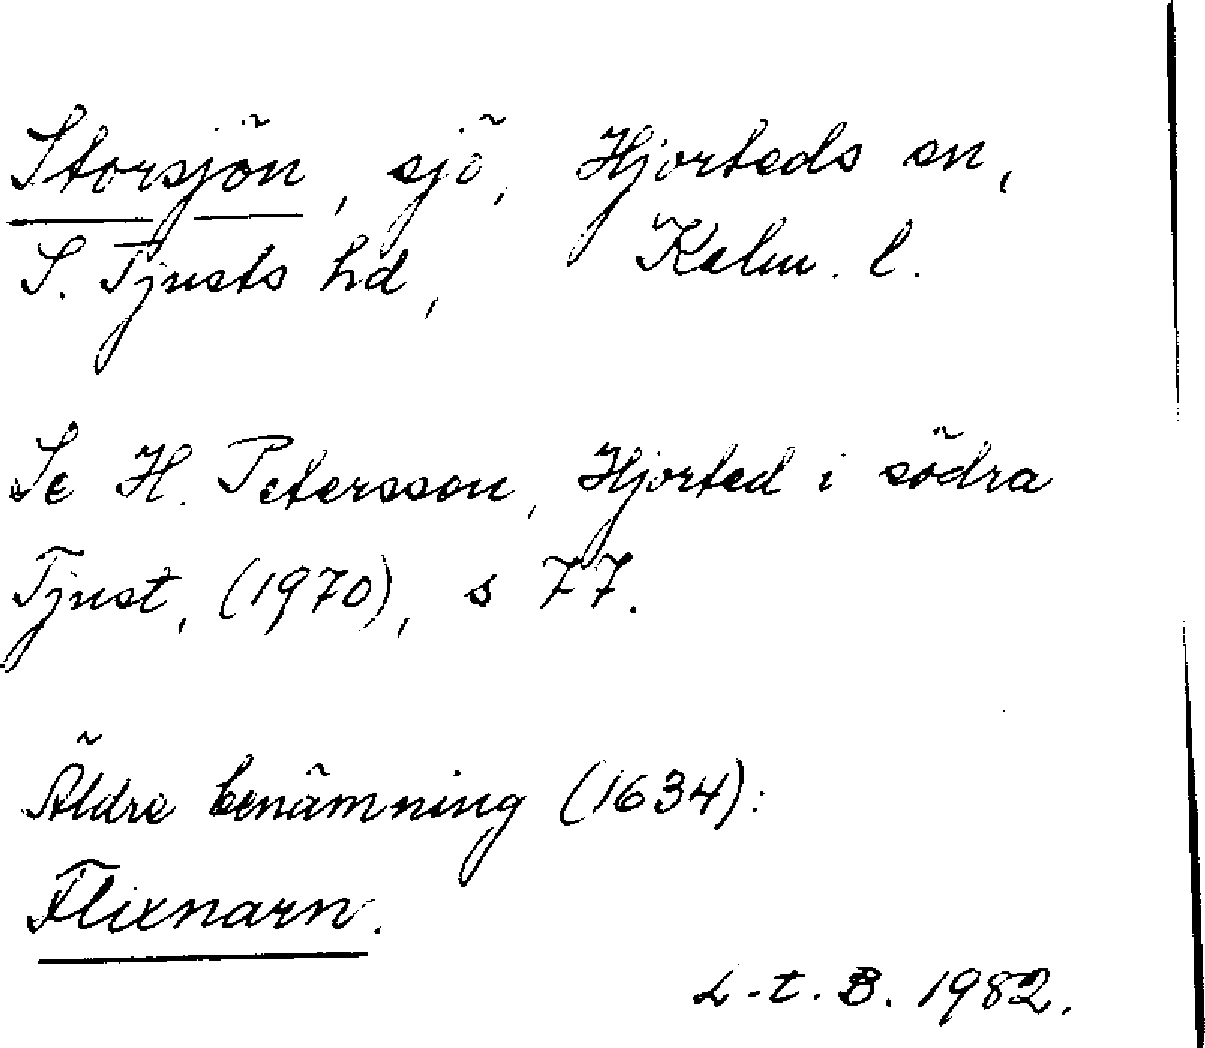 Storsjön, sjö, Hjorteds sn,
S. Tjusts hd, Kalm. l.
Se H. Petersson, Hjorted i södra
Tjust, (1970), s 77.
Äldre benämning (1634):
Flixnarn.
L-t. B. 1982.